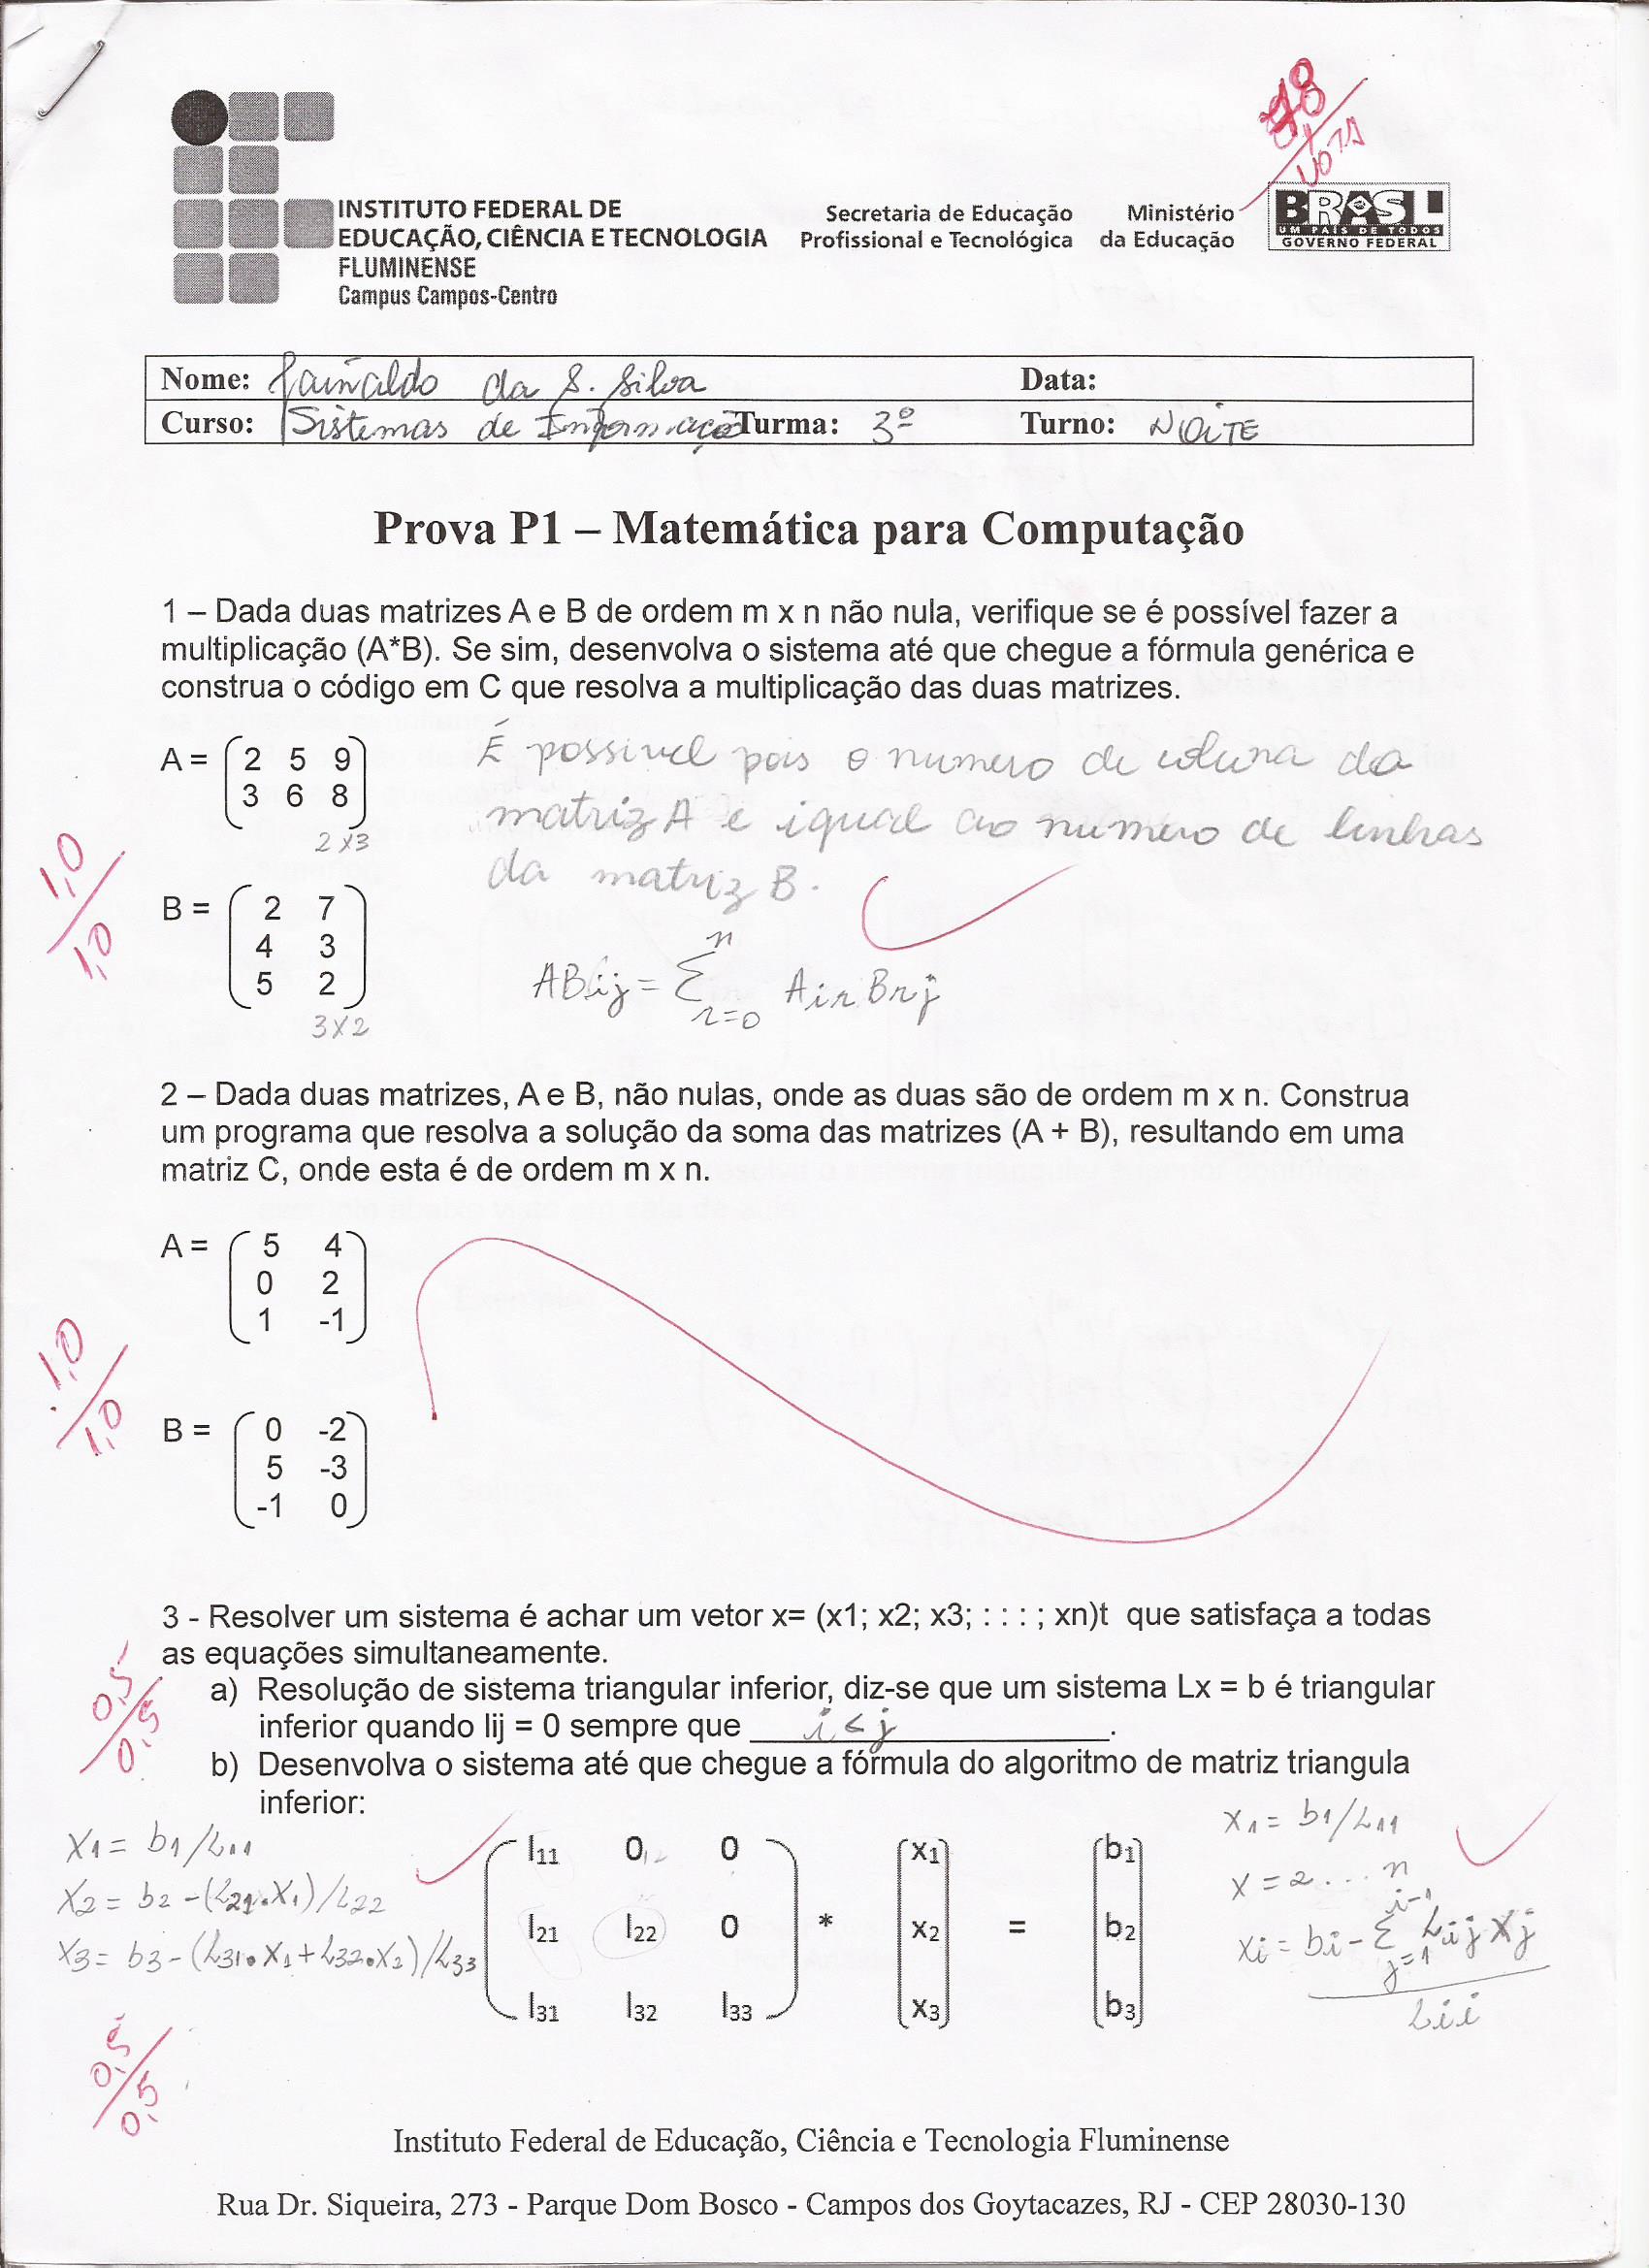 NOTA
INSTITUTO FEDERAL DE
EDUCAÇÃO, CIÊNCIA E TECNOLOGIA
FLUMINENSE
Campus Campos-Centro
Secretaria de Educação
Profissional e Tecnológica
Ministério
da Educação
BRASIL
UM PAÍS DE TODOS
GOVERNO FEDERAL
Nome: da S. Silva Data:
Curso: Sistemas de Informação Turma: 3º Turno: NOITE
Prova P1 – Matemática para Computação
1 – Dada duas matrizes A e B de ordem m x n não nula, verifique se é possível fazer a
multiplicação (A*B). Se sim, desenvolva o sistema até que chegue a fórmula genérica e
construa o código em C que resolva a multiplicação das duas matrizes.
A = 2 5 9
3 6 8
2x3
É possivel pois o numero de coluna da
matriz A e igual ao numero de linhas
da matriz B.
1,0
1,0
B = 2 7
4 3
5 2
3x2
ABij = Σ n r=0 Air Brj
2 – Dada duas matrizes, A e B, não nulas, onde as duas são de ordem m x n. Construa
um programa que resolva a solução da soma das matrizes (A + B), resultando em uma
matriz C, onde esta é de ordem m x n.
A = 5 4
0 2
1 -1
1,0
1,0
B = 0 -2
5 -3
-1 0
3 - Resolver um sistema é achar um vetor x= (x1; x2; x3; : : : ; xn)t que satisfaça a todas
as equações simultaneamente.
0,5
0,5
a) Resolução de sistema triangular inferior, diz-se que um sistema Lx = b é triangular
inferior quando lij = 0 sempre que i < j.
b) Desenvolva o sistema até que chegue a fórmula do algoritmo de matriz triangula
inferior:
X1 = b1/L11
X2 = b2 - (L21.X1)/L22
X3 = b3 - (L31.X1 + L32.X2)/L33
l11 0 0 x1 b1
l21 l22 0 * x2 = b2
l31 l32 l33 x3 b3
X1 = b1/L11
X = 2 ... n
Xi = bi - Σ i-1 j=1 Lij Xj
Lii
0,5
0,5
Instituto Federal de Educação, Ciência e Tecnologia Fluminense
Rua Dr. Siqueira, 273 - Parque Dom Bosco - Campos dos Goytacazes, RJ - CEP 28030-130